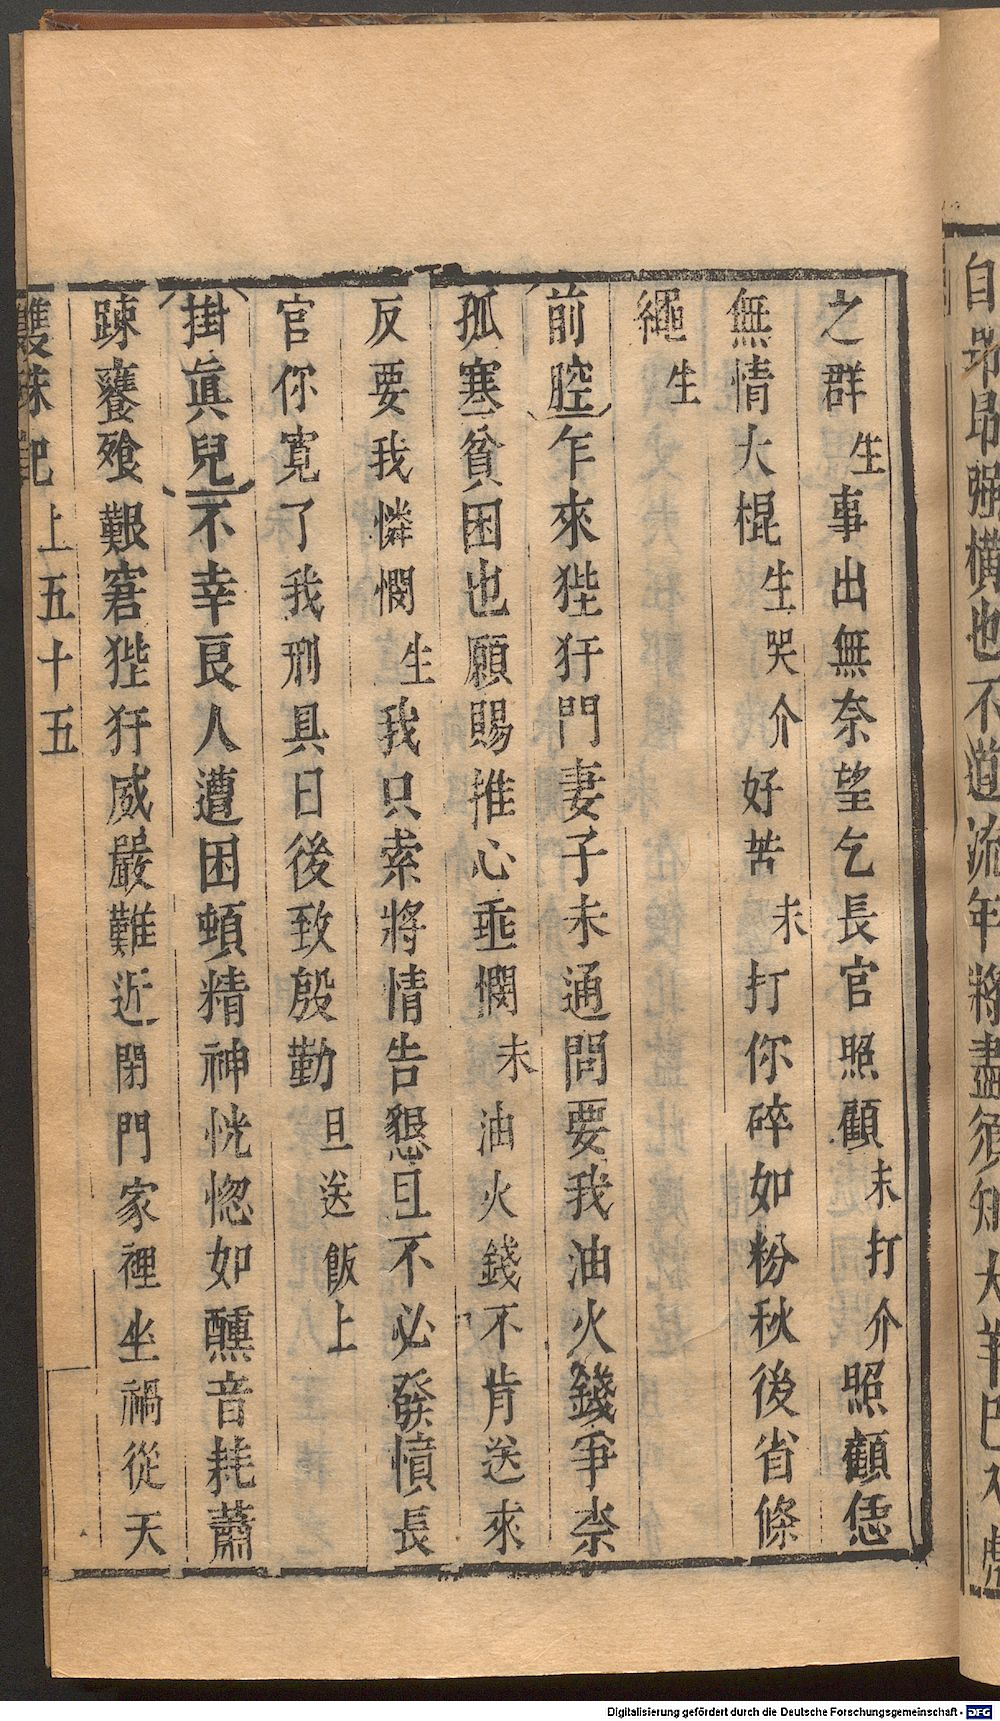 自昂昂强横也不道流年將盡須知犬羊
之群生事出無奈望乞長官照顧末打介照顧恁
無情大棍生哭介好苦末打你碎如粉秋後省條
繩生
前腔乍來狴犴門妻子未通問要我油火錢爭柰
孤寒貧困也願賜推心垂憫末油火錢不肯送來
反要我憐憫生我只索將情告懇且不必發憤長
官你寬了我刑具日後致殷勤旦送飯上
掛眞兒不幸良人遭困頓精神恍惚如醺音耗蕭
踈饔飱艱窘狴犴威嚴難近閉門家裡坐禍從天
雙珠記 上五十五
Digitalisierung gefördert durch die Deutsche Forschungsgemeinschaft - DFG